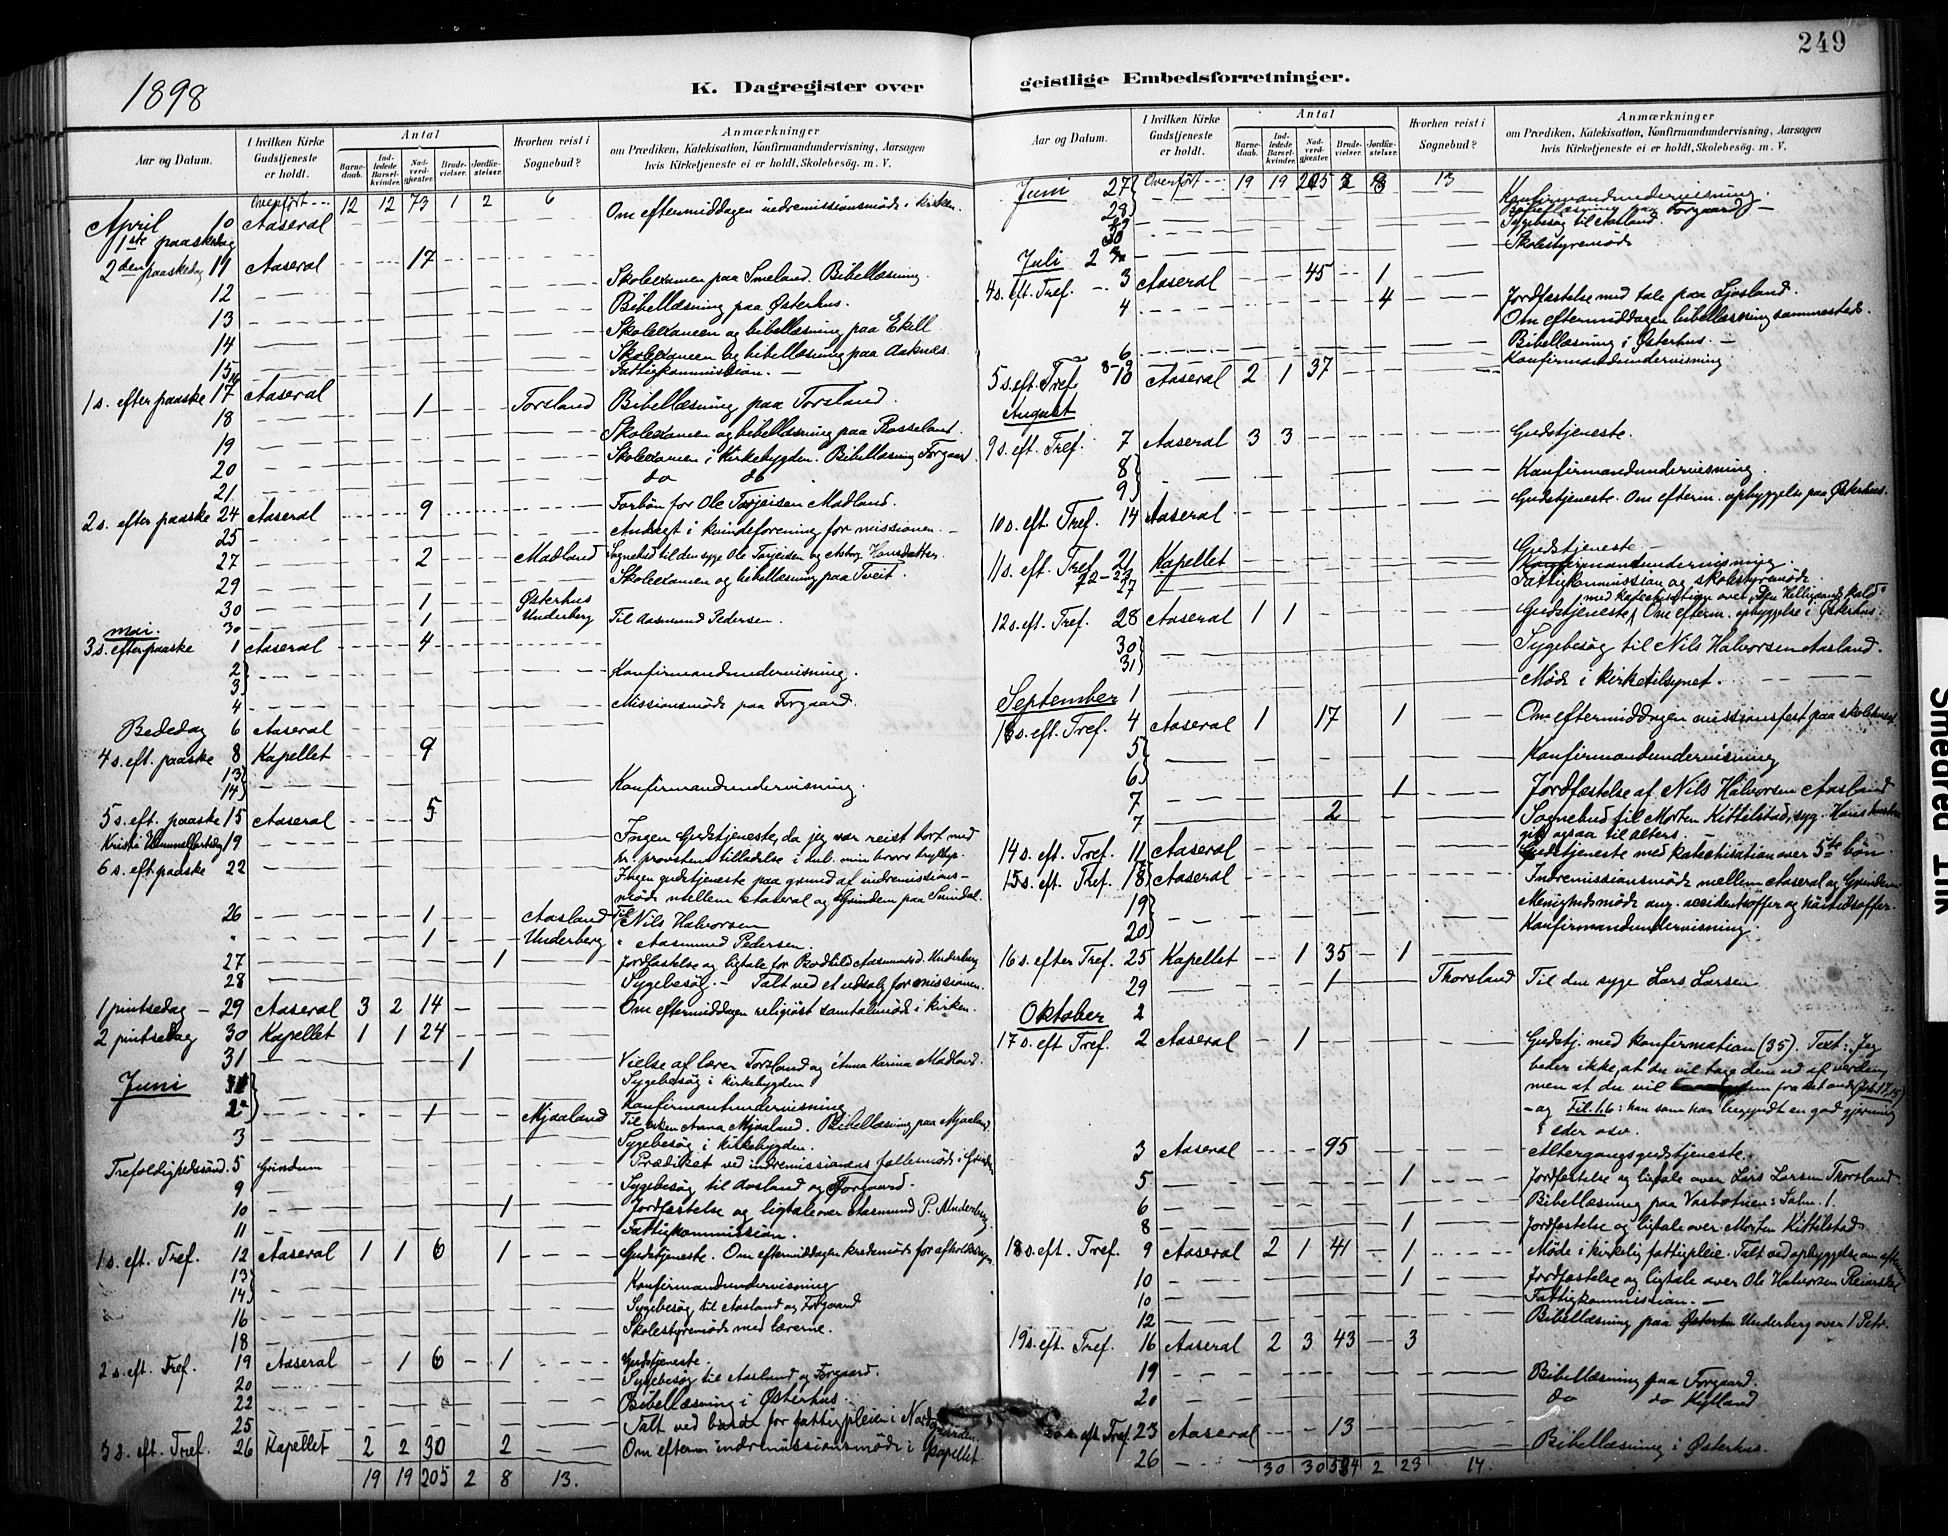 249
1898
K. Dagregister over geistlige Embedsforretninger.
Aar og Datum.
I hvilken Kirke Gudstjeneste er holdt.
Antal
Barnedaab.
Indledede Barselkvinder.
Nadverdgjester.
Brudevielser.
Jordfæstelser.
Hvorhen reist i Sognebud?
Anmærkninger
om Prædiken, Katekisation, Konfirmandundervisning, Aarsagen
hvis Kirketjeneste ei er holdt, Skolebesög m. V.
Overført 12 12 73 1 2 6
April 10 Aaseral Om eftermiddagen indremissionsmøde i kirken.
1ste paaskedag
2den paaskedag 11 Aaseral 17
12 Skoleexamen paa Smeland. Bibellæsning.
13 Bibellæsning paa Østerhus.
14 Skoleexamen og bibellæsning paa Ekell
15 Skoleexamen og bibellæsning paa Aaknes.
16 Fattigkommission.
1 s. efter paaske 17 Aaseral 1 Torsland Bibellæsning paa Torsland.
18 Skoleexamen og bibellæsning paa Rosseland.
19 Skoleexamen i Kirkebygden. Bibellæsning Forgaard
20 do do
21
2 s. efter paaske 24 Aaseral 9 Forbøn for Ole Tarjeisen Madland.
25 Andagt i kvindeforening for missionen.
27 2 Madland Sognebud til den syge Ole Tarjeisen og Hansdatter.
29 Skoleexamen og bibellæsning paa Tveit.
30 1 Østerhus
30 1 Underberg Til Aasmund Pedersen.
Mai.
3 s. efter paaske 1 Aaseral 4
2
3 Konfirmandundervisning.
4 Missionsmøde paa Forgaard.
Bededag 6 Aaseral
4 s. eft. paaske 8 Kapellet 9
13
14 Konfirmandundervisning.
5 s. eft. paaske 15 Aaseral 5
Kristi Himmelfartsdag 19 Ingen Gudstjeneste, da jeg var reist bort med
hr. provstens tilladelse i anl. min brors bryllup.
6 s. eft. paaske 22 Ingen gudstjeneste paa grund af indremissions-
møde mellem Aaseral og Grindem paa Sundal.
26 1 Aasland Til Nils Halvorsen
" 1 Underberg " Aasmund Pedersen.
27 1 Jordfæstelse og ligtale for Aasmundsd. Underberg
28 Sygebesøg. - Talt ved et udsalg for missionen.
1 pintsedag 29 Aaseral 3 2 14 Om eftermiddagen religiøst samtalemøde i kirken.
2 pintsedag 30 Kapellet 1 1 24
31 1 Vielse af lærer Torsland og Anna Karina Madland.
Sygebesøg i kirkebygden
Juni 1
2 1 Mjaaland Konfirmandundervisning
Til Anna Mjaaland. Bibellæsning paa Mjaaland.
3 Sygebesøg i kirkebygden.
Trefoldighedssønd. 5 Grindum Prædiket ved indremissionens fællesmøde i Grindum
9 Sygebesøg til Aasland og Forgaard.
10 1 Jordfæstelse og ligtale over Aasmund P. Underberg
11 Fattigkommission.
1 s. eft. Tref. 12 Aaseral 1 1 6 1 Gudstjeneste. Om eftermiddagen kredsmøde for afholdssagen.
13
14 Konfirmandundervisning
16 Sygebesøg til Aasland og Forgaard
18 Skolestyremøde med lærerne.
2 s. eft. Tref. 19 Aaseral 1 6 1 Gudstjeneste.
20 Sygebesøg til Aasland og Forgaard.
22 Bibellæsning i Østerhus.
25 Talt ved basar for fattigpleien i
3 s. eft. Tref. 26 Kapellet 2 2 30 2 Om efterm. indremissionsmøde i kapellet
19 19 205 2 8 13.
Aar og Datum.
I hvilken Kirke Gudstjeneste er holdt.
Antal
Barnedaab.
Indledede Barselkvinder.
Nadverdgjester.
Brudevielser.
Jordfæstelser.
Hvorhen reist i Sognebud?
Anmærkninger
om Prædiken, Katekisation, Konfirmandundervisning, Aarsagen
hvis Kirketjeneste ei er holdt, Skolebesög m. V.
Juni 27 Overført 19 19 205 2 8 13
28 Konfirmandundervisning.
Bibellæsning paa Forgaard
Sygebesøg til Aasland.
30
Juli 2 Skolestyremøde
4 s. eft. Tref. 3 Aaseral 45 1
4 4 Jordfæstelse med tale paa Ljosland.
Om eftermiddagen bibellæsning sammesteds.
6 Bibellæsning i Østerhus.
8-9 Konfirmandundervisning
5 s. eft. Tref 10 Aaseral 2 1 37
August
9 s. eft. Tref. 7 Aaseral 3 3 Gudstjeneste.
8
9 Konfirmandundervisning.
10 s. eft. Tref. 14 Aaseral Gudstjeneste. Om efterm. opbyggelse paa Østerhus.
11 s. eft. Tref. 21 Kapellet Gudstjeneste
22-23 Konfirmandundervisning.
27 Fattigkommission og skolestyremøde.
12 s. eft. Tref. 28 Aaseral 1 1 Gudstjeneste med katechisation over "Den Helligaand kald" Om efterm. opbyggelse i Østerhus.
30
31 Sygebesøg til Nils Halvorsen Aasland.
September 1 Møde i kirketilsynet.
13 s. eft. Tref. 4 Aaseral 1 17 1 Om eftermiddagen missionsfest paa skolehuset
5
6 Konfirmandundervisning
7 1 Jordfæstelse af Nils Halvorsen Aasland
7 2 Sognebud til Morten Kittelstad, syg. Hans hustru
gik ogsaa til alters.
14 s. eft. Tref. 11 Aaseral Gudstjeneste med katechisation over 5te bøn
15 s. eft. Tref. 18 Aaseral Indremissionsmøde mellem Aaseral og Grindem
Menighedsmøde ang. accidentsoffer og høitidsoffer.
19
20 Konfirmandundervisning.
16 s. efter Tref. 25 Kapellet 1 35 1
29 1 Thorsland Til den syge Lars Larsen
Oktober 2
17 s. eft Tref. 2 Aaseral 1 Gudstj. med konfirmation (35). Text: Jeg
beder ikke, at du vil tage dem ud af verden,
men at du vil dem fra det onde (Joh. 17,15)
- og Fil. 1.6: han som har begyndt en god gjerning
i eder osv.
3 Aaseral 95 Altergangsgudstjeneste.
5 1 Jordfæstelse og ligtale over Lars Larsen Thorsland
6 Bibellæsning paa : Salm. 1.
8 1 Jordfæstelse og ligtale over Morten Kittelstad
18 s. eft. Tref. 9 Aaseral 2 1 41 1 Møde i kirkelig fattigpleie. Talt ved opbyggelse om
10 1 Jordfæstelse og ligtale over Ole Halvorsen
10 Fattigkommission.
12 Bibellæsning paa Underberg over 1 Petr.
19 s. eft. Tref. 16 Aaseral 2 3 43 3
19 Bibellæsning paa Forgaard.
20 do do Kylland
eft. Tref. 23 Aaseral 13
26 Bibellæsning i Østerhus.
30 30 2 23 14.
Smedrød Trik